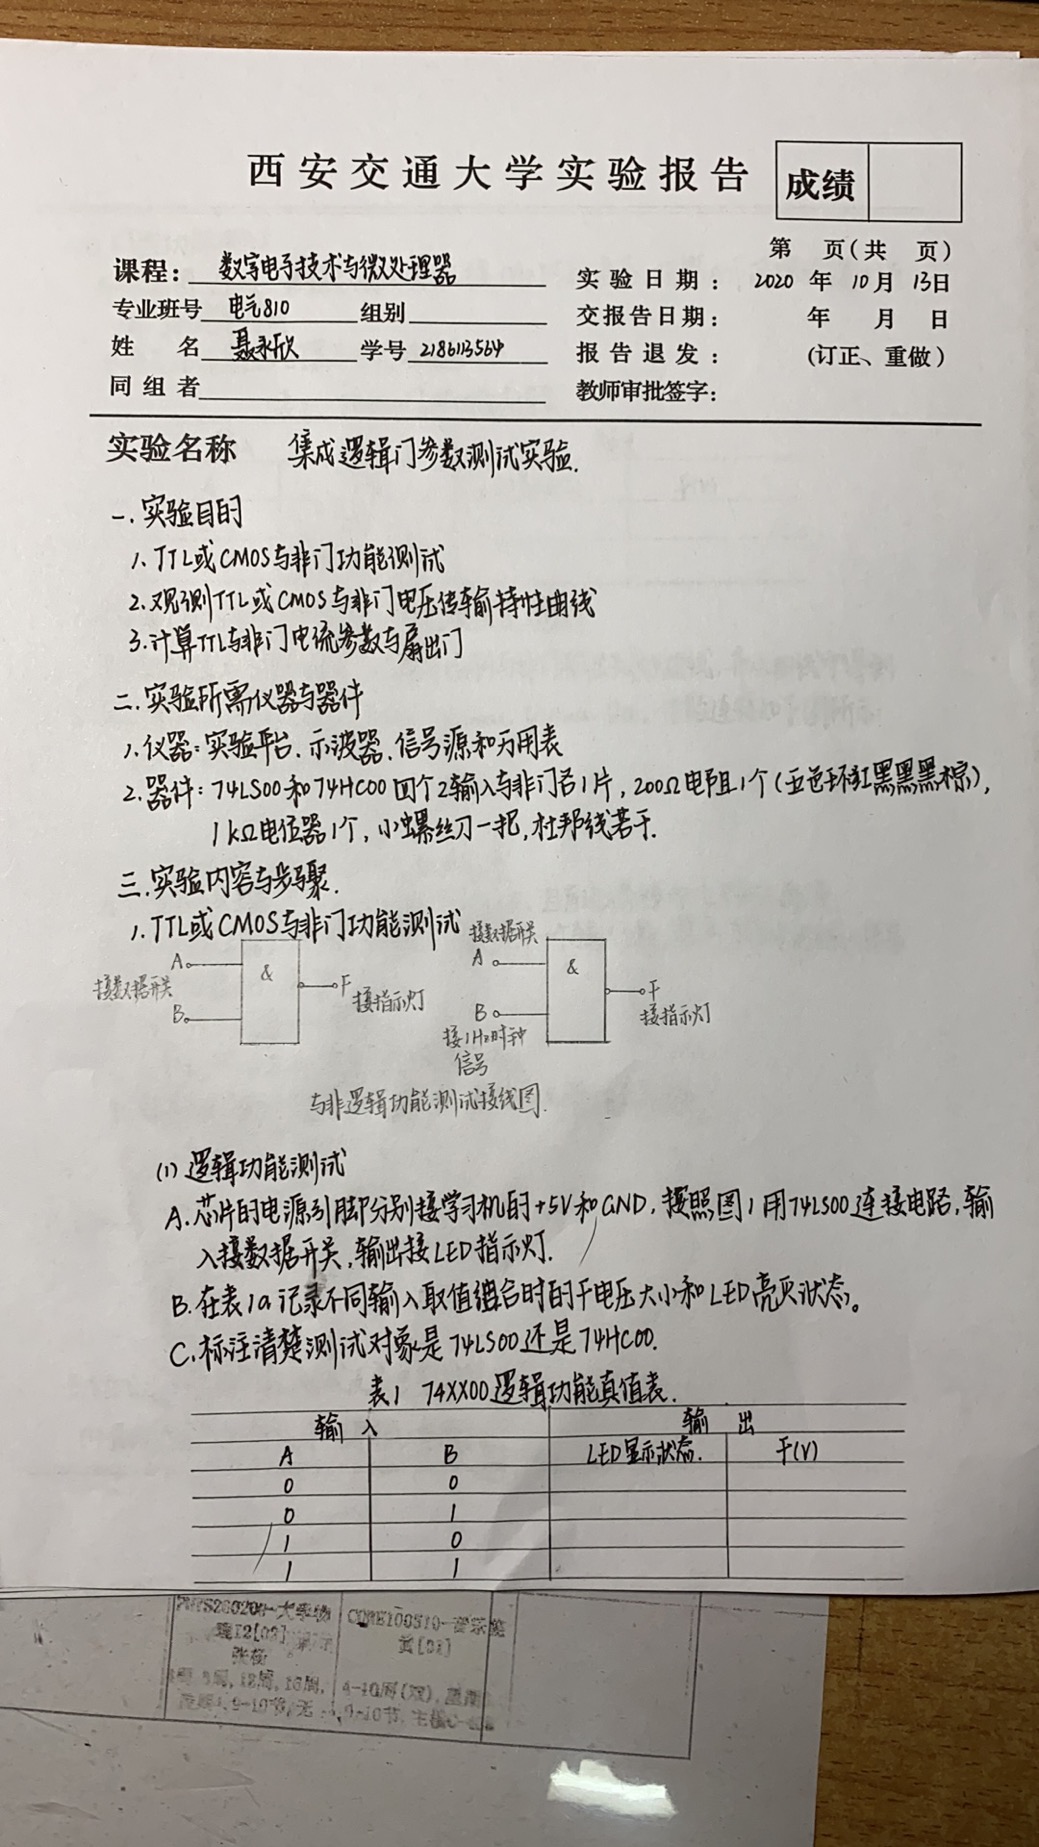 西安交通大学实验报告
成绩
第 页(共 页)
课程: 数字电子技术与微处理器
实验日期: 2020 年 10 月 13日
专业班号 电气810 组别
交报告日期: 年 月 日
姓 名 聂永欣 学号 2186113564
报告退发: (订正、重做)
同组者
教师审批签字:
实验名称 集成逻辑门参数测试实验.
一.实验目的
1.TTL或CMOS与非门功能测试
2.观测TTL或CMOS与非门电压传输特性曲线
3.计算TTL与非门电流参数与扇出门
二.实验所需仪器与器件
1.仪器:实验平台、示波器、信号源和万用表
2.器件:74LS00和74HC00四个2输入与非门各1片,200Ω电阻1个(五色环红黑黑黑棕),
1kΩ电位器1个,小螺丝刀一把,杜邦线若干.
三.实验内容与步骤.
1.TTL或CMOS与非门功能测试
A
接数据开关
B
&
F
接指示灯
接数据开关
A
B
接1Hz时钟
信号
&
F
接指示灯
与非逻辑功能测试接线图.
(1)逻辑功能测试
A.芯片的电源引脚分别接学习机的+5V和GND,按照图1用74LS00连接电路,输
入接数据开关,输出接LED指示灯.
B.在表1a记录不同输入取值组合时的F电压大小和LED亮灭状态。
C.标注清楚测试对象是74LS00还是74HC00.
表1 74XX00逻辑功能真值表.
输入 输出
A B LED显示状态. F(V)
0 0
0 1
1 0
1 1
张